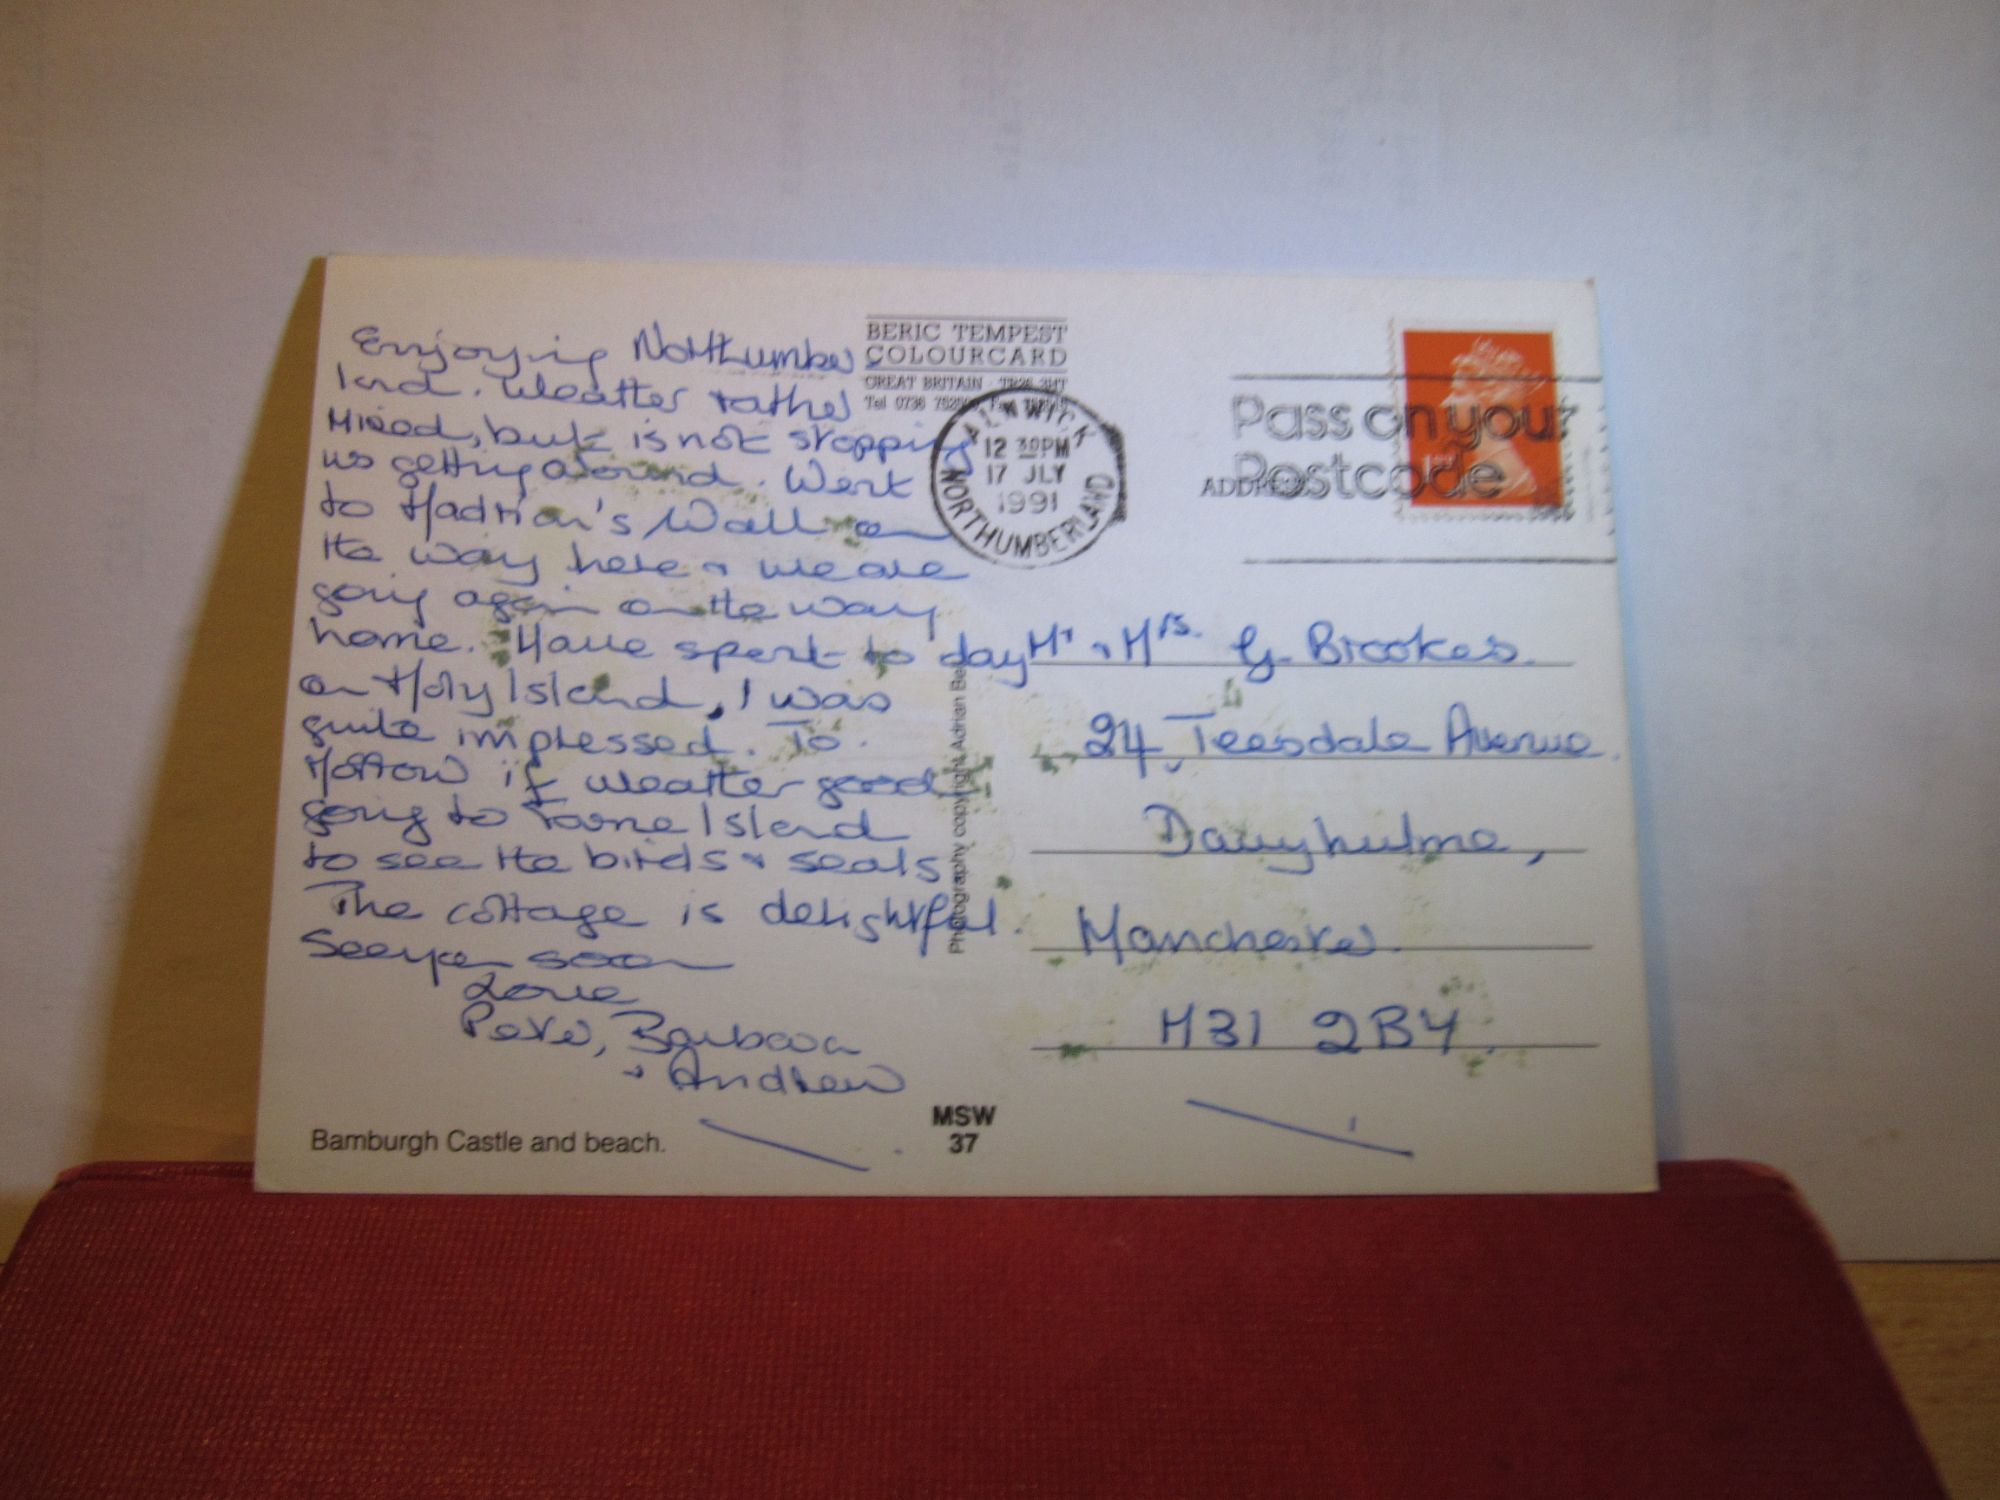 Enjoying Northumber
land. Weather rather
mixed, but is not stopping
us getting around. Went
to Hadrian's Wall on
the way here & we are
going again on the way
home. Have spent to day
on Holy Island, I was
quite impressed. To
morrow if weather good
going to Farne Island
to see the birds & seals
The cottage is delightful.
See you soon
Love
Peter, Barbara
& Andrew
Bamburgh Castle and beach.
BERIC TEMPEST
COLOURCARD
GREAT BRITAIN · TR26 3HT
Tel 0736
ALNWICK
12 30PM
17 JLY
1991
NORTHUMBERLAND
Photography copyright Adrian
MSW
37
Pass on your
Postcode
ADDRESS
Mr & Mrs. G. Brookes.
24, Teesdale Avenue.
Davyhulme,
Manchester.
M31 2BY.